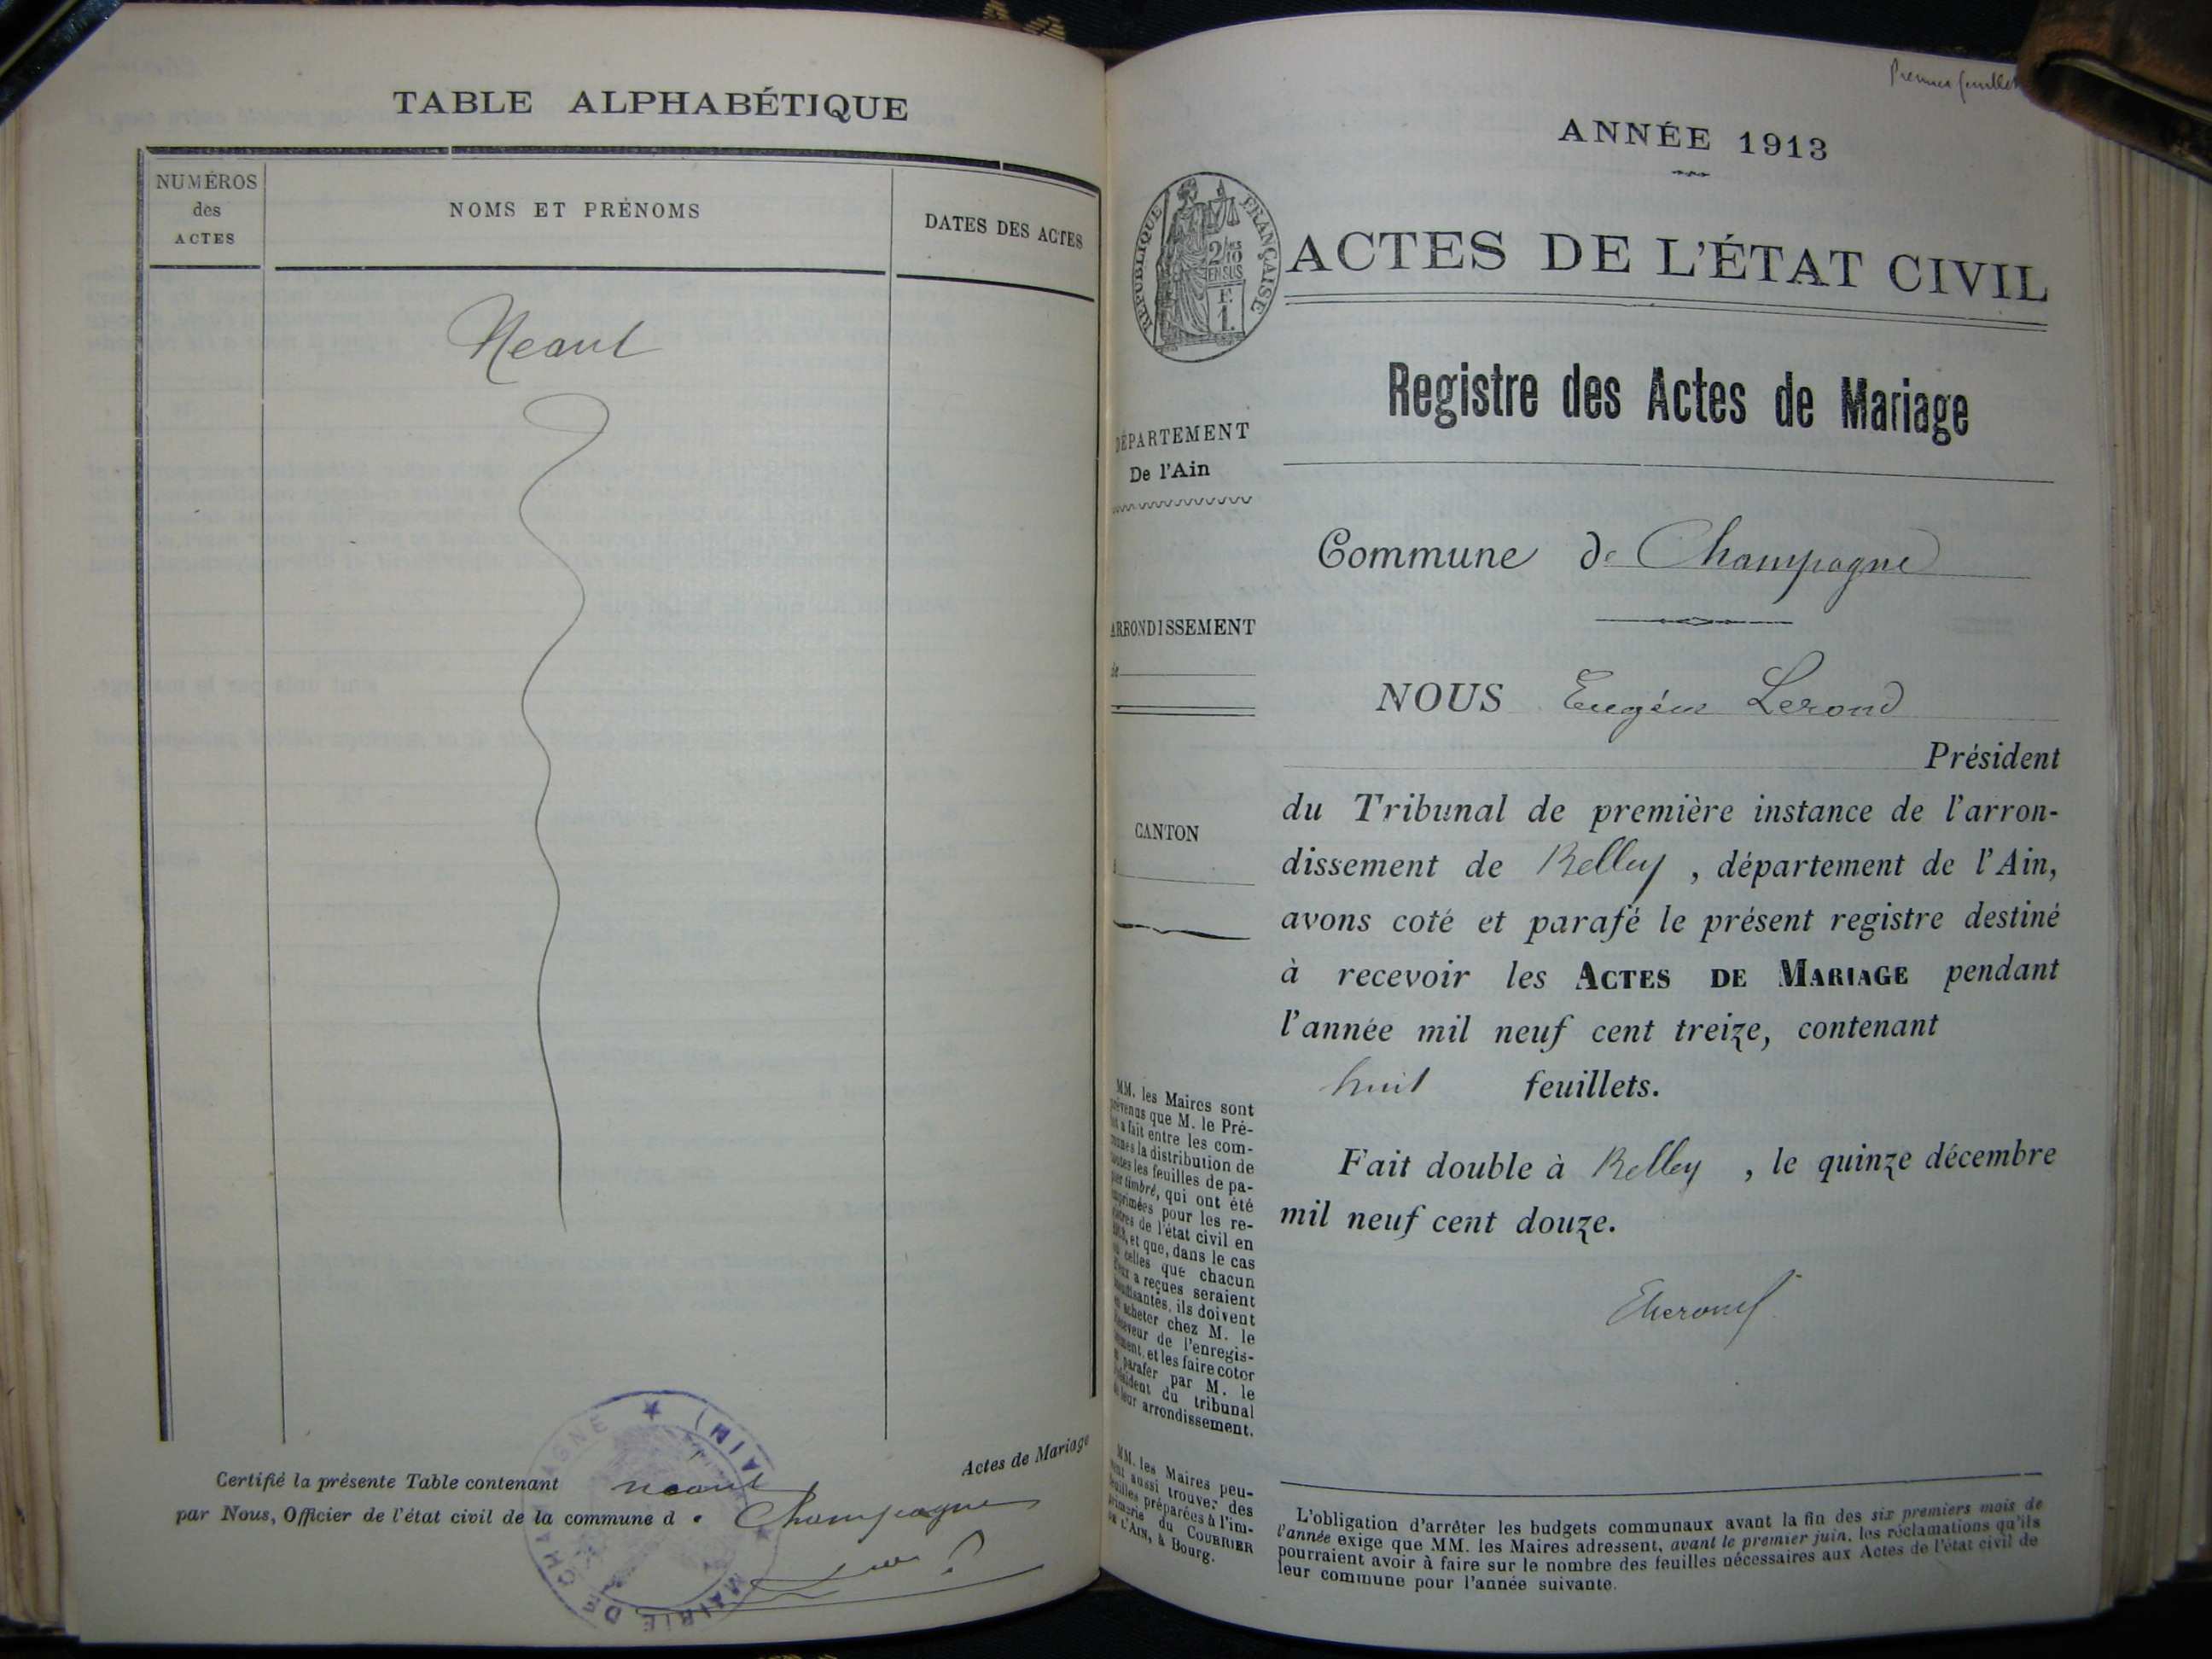 TABLE ALPHABÉTIQUE
NUMÉROS
des
ACTES
NOMS ET PRÉNOMS
DATES DES ACTES
Neant
Actes de Mariage
Certifié la présente Table contenant neant
par Nous, Officier de l'état civil de la commune de Champagne
MAIRIE DE CHAMPAGNE (AIN)
Premier feuillet
ANNÉE 1913
RÉPUBLIQUE FRANÇAISE
2/10
EN SUS
E
1.
ACTES DE L'ÉTAT CIVIL
Registre des Actes de Mariage
DÉPARTEMENT
De l'Ain
Commune de Champagne
ARRONDISSEMENT
de
NOUS Eugène Lerond
Président
du Tribunal de première instance de l'arron-
CANTON
dissement de Belley , département de l'Ain,
avons coté et parafé le présent registre destiné
à recevoir les ACTES DE MARIAGE pendant
l'année mil neuf cent treize, contenant
huit feuillets.
Fait double à Belley , le quinze décembre
mil neuf cent douze.
MM. les Maires sont
prévenus que M. le Pré-
fet a fait entre les com-
munes la distribution de
toutes les feuilles de pa-
pier timbré, qui ont été
imprimées pour les re-
gistres de l'état civil en
1913, et que, dans le cas
où celles que chacun
d'eux a reçues seraient
insuffisantes, ils doivent
en acheter chez M. le
Receveur de l'enregis-
trement, et les faire coter
et parafer par M. le
Président du tribunal
de leur arrondissement.
MM. les Maires peu-
vent aussi trouver des
feuilles préparées à l'im-
primerie du COURRIER
DE L'AIN, à Bourg.
L'obligation d'arrêter les budgets communaux avant la fin des six premiers mois de
l'année exige que MM. les Maires adressent, avant le premier juin, les réclamations qu'ils
pourraient avoir à faire sur le nombre des feuilles nécessaires aux Actes de l'état civil de
leur commune pour l'année suivante.